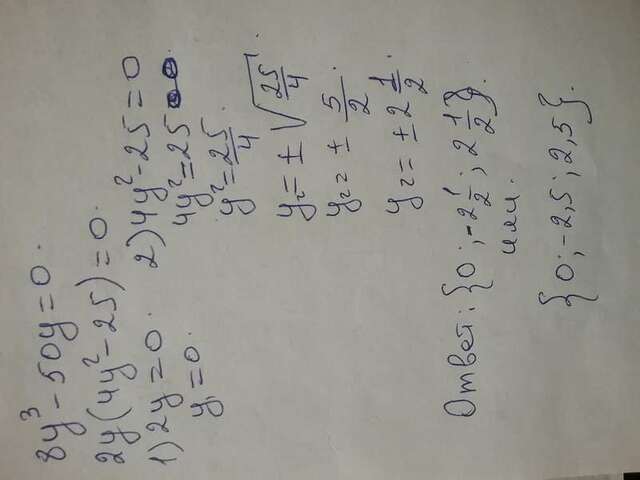 8y³ − 50y = 0.
2y(4y² − 25) = 0.
1) 2y = 0.
y₁ = 0.
2) 4y² − 25 = 0
4y² = 25
y² = 25/4.
y₂ = ± √(25/4).
y₂ = ± 5/2.
y₂ = ± 2 1/2.
Ответ: {0 ; -2 1/2 ; 2 1/2}.
или.
{0 ; -2,5 ; 2,5}.